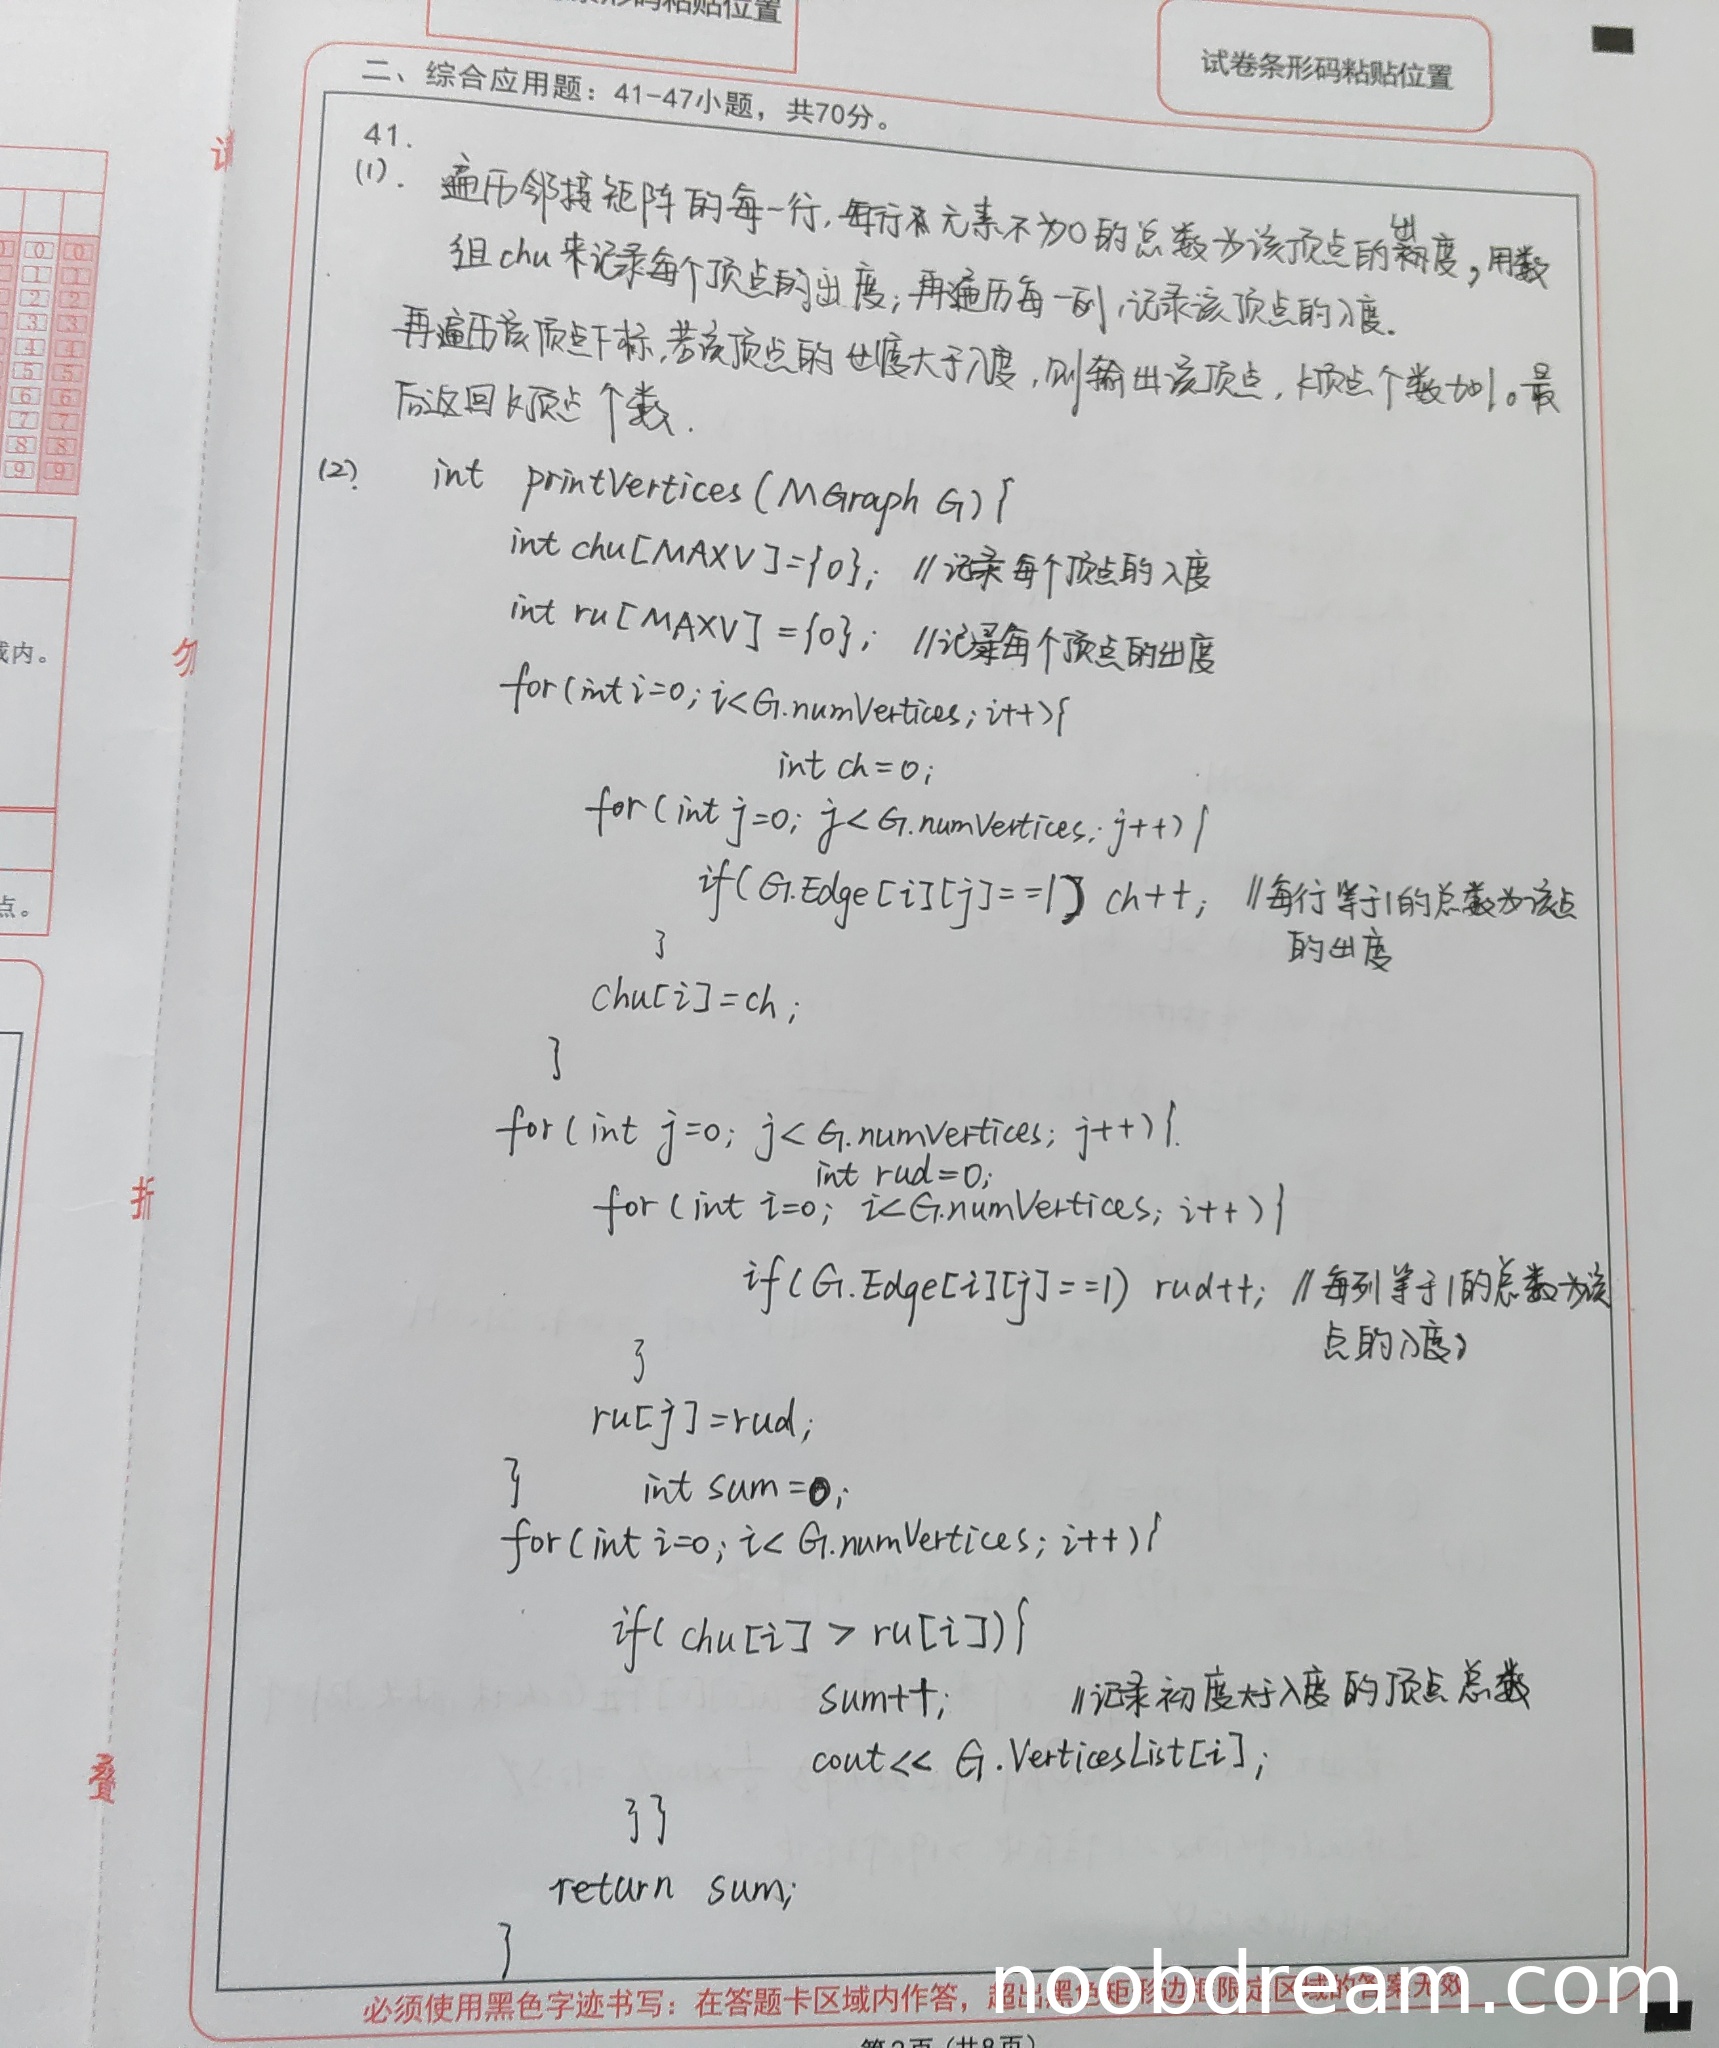 条形码粘贴位置
试卷条形码粘贴位置
二、综合应用题：41-47小题，共70分。
41.
(1). 遍历邻接矩阵的每一行,每行元素不为0的总数为该顶点的出度,用数
组chu来记录每个顶点的出度;再遍历每一列,记录该顶点的入度.
再遍历该顶点下标,若该顶点的出度大于入度,则输出该顶点,k顶点个数加1。最
后返回k顶点个数.
(2). int printVertices(MGraph G){
int chu[MAXV]={0}; //记录每个顶点的入度
int ru[MAXV]={0}; //记录每个顶点的出度
for(int i=0; i<G.numVertices; i++){
int ch=0;
for(int j=0; j<G.numVertices; j++){
if(G.Edge[i][j]==1) ch++; //每行等于1的总数为该点
的出度
}
chu[i]=ch;
}
for(int j=0; j<G.numVertices; j++){
int rud=0;
for(int i=0; i<G.numVertices; i++){
if(G.Edge[i][j]==1) rud++; //每列等于1的总数为该
点的入度
}
ru[j]=rud;
} int sum=0;
for(int i=0; i<G.numVertices; i++){
if(chu[i]>ru[i]){
sum++; //记录初度大于入度的顶点总数
cout<<G.VerticesList[i];
}}
return sum;
}
必须使用黑色字迹书写：在答题卡区域内作答，超出黑色矩形边框限定区域的答案无效
noobdream.com
第2页(共8页)
勿
折
叠
域内。
点。
0 0
1 1
2 2
3 3
4 4
5 5
6 6
7 7
8 8
9 9